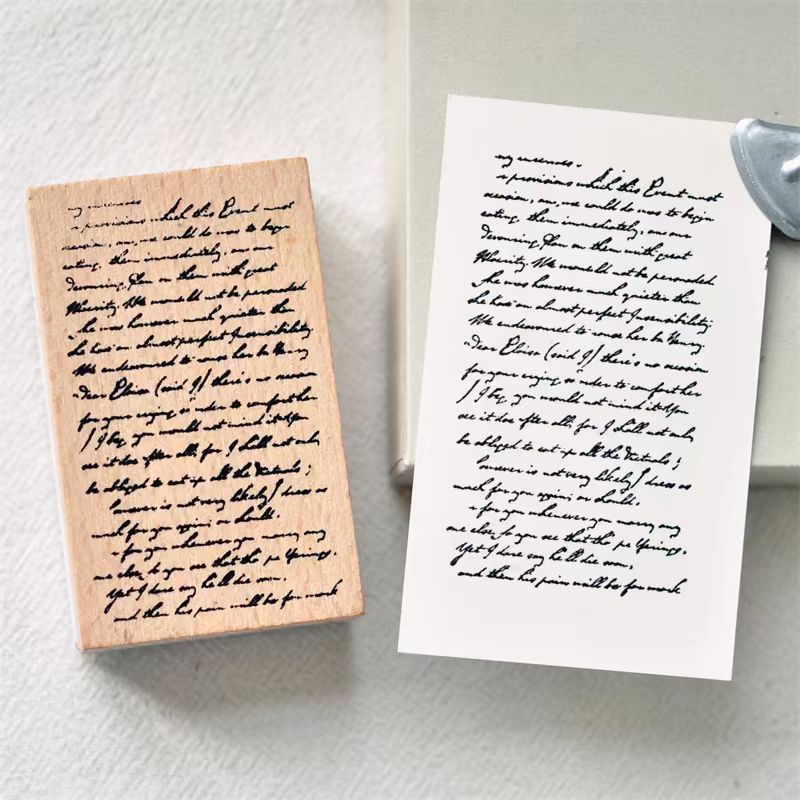 which this Event must
we could do was to begin
eating them immediately, and our
Devouring Plan on them with great
Alacrity. We would not be persuaded
she was however much quieter than
she has an almost perfect Insensibility
We endeavoured to rouse her by Henry
"Dear Eloisa (said I) there's no occasion
for your crying so order to comfort her
I beg you would not mind it
see it does after all; for I shall not only
be obliged to eat up all the Victuals;
however is not very likely) dress as
much for you again or should.
+ for you whenever you marry any
me else, so you see that tho'
Yet I dare say he'll die soon,
and then his pain will be for
which this Event must
occasion, we could do was to begin
eating them immediately, and our
Devouring Plan on them with great
Alacrity. We would not be persuaded
she was however much quieter than
she has an almost perfect Insensibility
We endeavoured to rouse her by Henry
"Dear Eloisa (said I) there's no occasion
for your crying so order to comfort her
I beg you would not mind it
see it does after all; for I shall not only
be obliged to eat up all the Victuals;
however is not very likely) dress as
much for you again or should.
+ for you whenever you marry any
me else, so you see that tho'
Yet I dare say he'll die soon,
and then his pain will be for